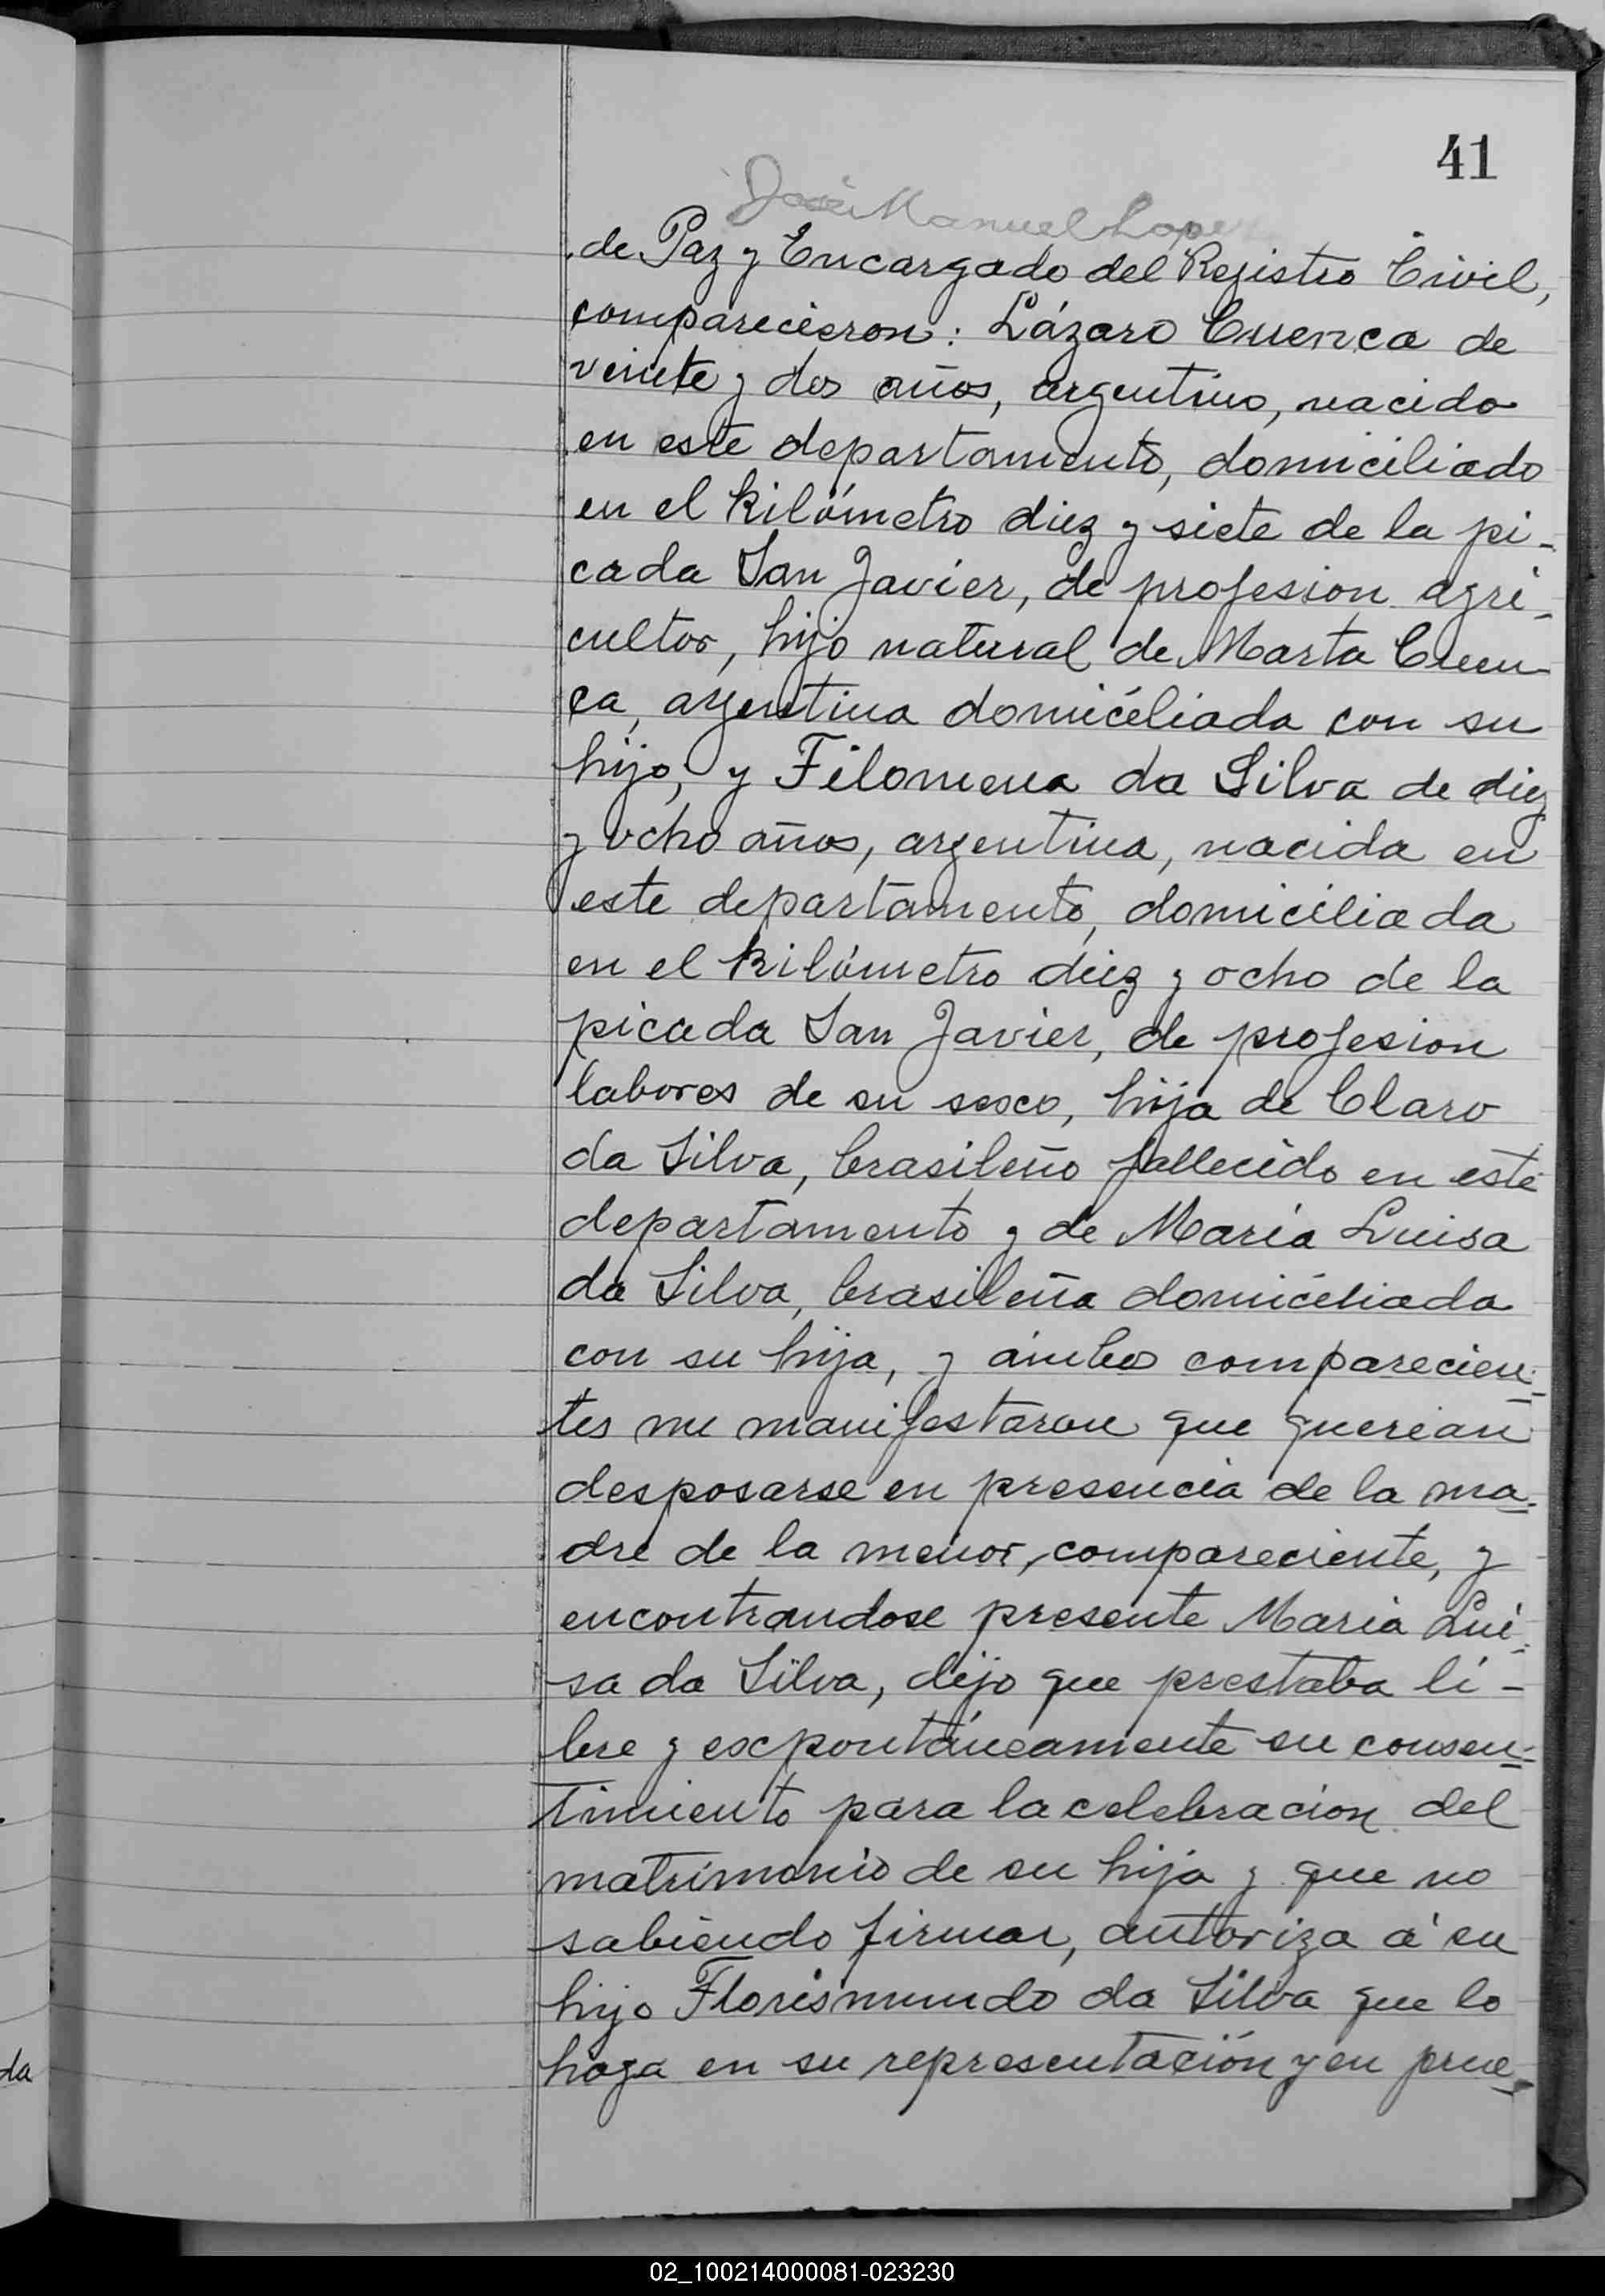 41
José Manuel Lopez
de Paz y Encargado del Registro Civil,
comparecieron: Lázaro Cuenca de
veinte y dos años, argentino, nacido
en este departamento, domiciliado
en el kilómetro diez y siete de la pi-
cada San Javier, de profesion agri-
cultor, hijo natural de Marta Cuen-
ca, argentina domiciliada con su
hijo, y Filomena da Silva de diez
y ocho años, argentina, nacida en
este departamento, domiciliada
en el kilómetro diez y ocho de la
picada San Javier, de profesion
labores de su sexo, hija de Claro
da Silva, brasileño fallecido en este
departamento y de Maria Luisa
da Silva, brasileña domiciliada
con su hija, y ámbos comparecien-
tes me manifestaron que querian
desposarse en presencia de la ma-
dre de la menor, compareciente, y
encontrandose presente Maria Lui-
sa da Silva, dijo que prestaba li-
bre y expontáneamente su consen-
timiento para la celebracion del
matrimonio de su hija y que no
sabiendo firmar, autoriza á su
hijo Florismundo da Silva que lo
haga en su representación y en prue-
da
02_100214000081-023230